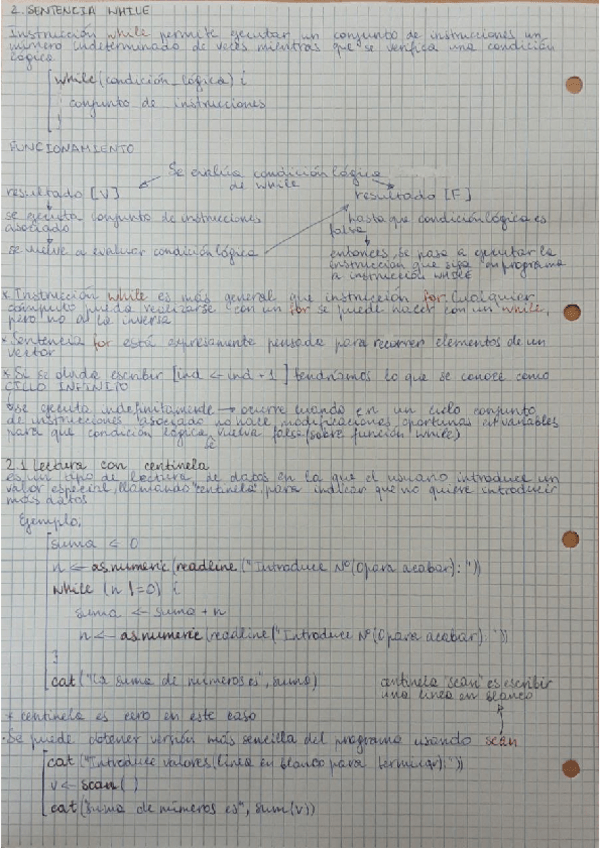 2. SENTENCIA WHILE
Instrucción while permite ejecutar un conjunto de instrucciones un
número indeterminado de veces mientras que se verifica una condición
lógica
while (condición_lógica) {
conjunto de instrucciones
}
FUNCIONAMIENTO
Se evalúa condición lógica
de while
resultado [V]
resultado [F]
se ejecuta conjunto de instrucciones
asociado
hasta que condición lógica es
falsa
se vuelve a evaluar condición lógica
entonces, se pasa a ejecutar la
instrucción que siga en programa
a instrucción while
* Instrucción while es más general que instrucción for. Cualquier
cómputo pueda realizarse con un for se puede hacer con un while,
pero no a la inversa
* Sentencia for está expresamente pensada para recorrer elementos de un
vector
* Si se olvida escribir [ind <- ind + 1] tendríamos lo que se conoce como
CICLO INFINITO
se ejecuta indefinitamente → ocurre cuando en un ciclo conjunto
de instrucciones asociado no hace modificaciones oportunas variables
para que condición lógica se vuelva falsa (sobre función while)
2.1 Lectura con centinela
es un tipo de lectura de datos en la que el usuario introduce un
valor especial, llamando "centinela", para indicar que no quiere introducir
más datos
Ejemplo,
suma <- 0
n <- as.numeric(readline("Introduce Nº(0 para acabar): "))
while (n != 0) {
suma <- suma + n
n <- as.numeric(readline("Introduce Nº(0 para acabar): "))
}
cat("La suma de números es", suma)
centinela "scan" es escribir
una línea en blanco
* centinela es cero en este caso
· Se puede obtener versión más sencilla del programa usando scan
cat("Introduce valores (línea en blanco para terminar): "))
v <- scan( )
cat("Suma de números es", sum(v))